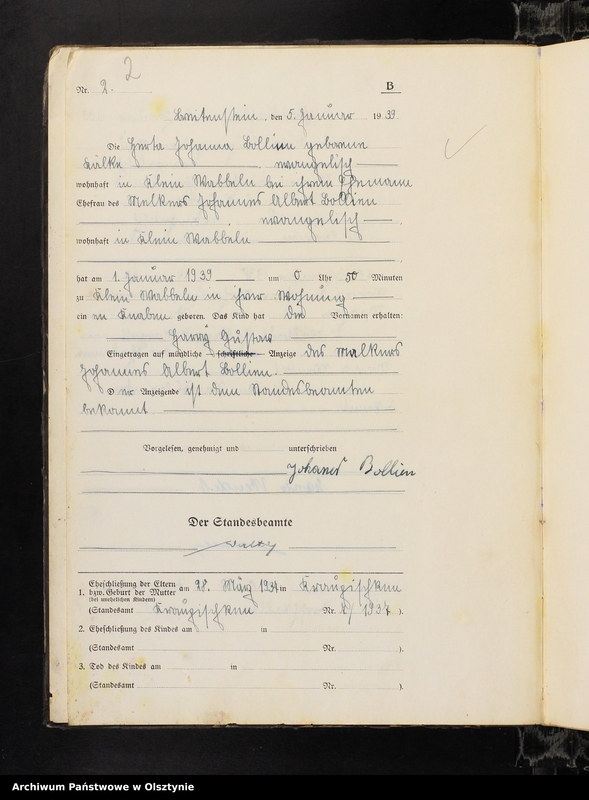 2
Nr. 2. B
Breitenstein, den 5. Januar 1939
Die Herta Johanna Bollien geborene
Kälke evangelisch
wohnhaft in Klein Wabbeln bei ihrem Ehemann
Ehefrau des Melkers Johannes Albert Bollien
evangelisch
wohnhaft in Klein Wabbeln
hat am 1. Januar 1939 um 0 Uhr 50 Minuten
zu Klein Wabbeln in ihrer Wohnung
ein en Knaben geboren. Das Kind hat die Vornamen erhalten:
Harry Gustav
Eingetragen auf mündliche – schriftliche – Anzeige des Melkers
Johannes Albert Bollien.
D er Anzeigende ist dem Standesbeamten
bekannt
Vorgelesen, genehmigt und unterschrieben
Johanes Bollien
Der Standesbeamte
Eheschließung der Eltern
1. bzw. Geburt der Mutter am 28. März 1934 in Kraupischken
(bei unehelichen Kindern)
(Standesamt Kraupischken Nr. /1934 ).
2. Eheschließung des Kindes am in
(Standesamt Nr. ).
3. Tod des Kindes am in
(Standesamt Nr. ).
Archiwum Państwowe w Olsztynie